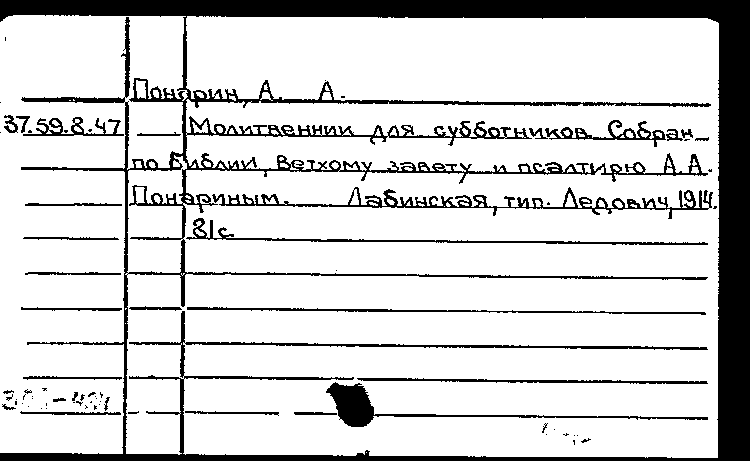 Понарин, А. А.
37.59.8.47 Молитвенник для субботников. Собран
по Библии, Ветхому завету и псалтирю А.А.
Понариным. Лабинская, тип. Ледович, 1914.
81с.